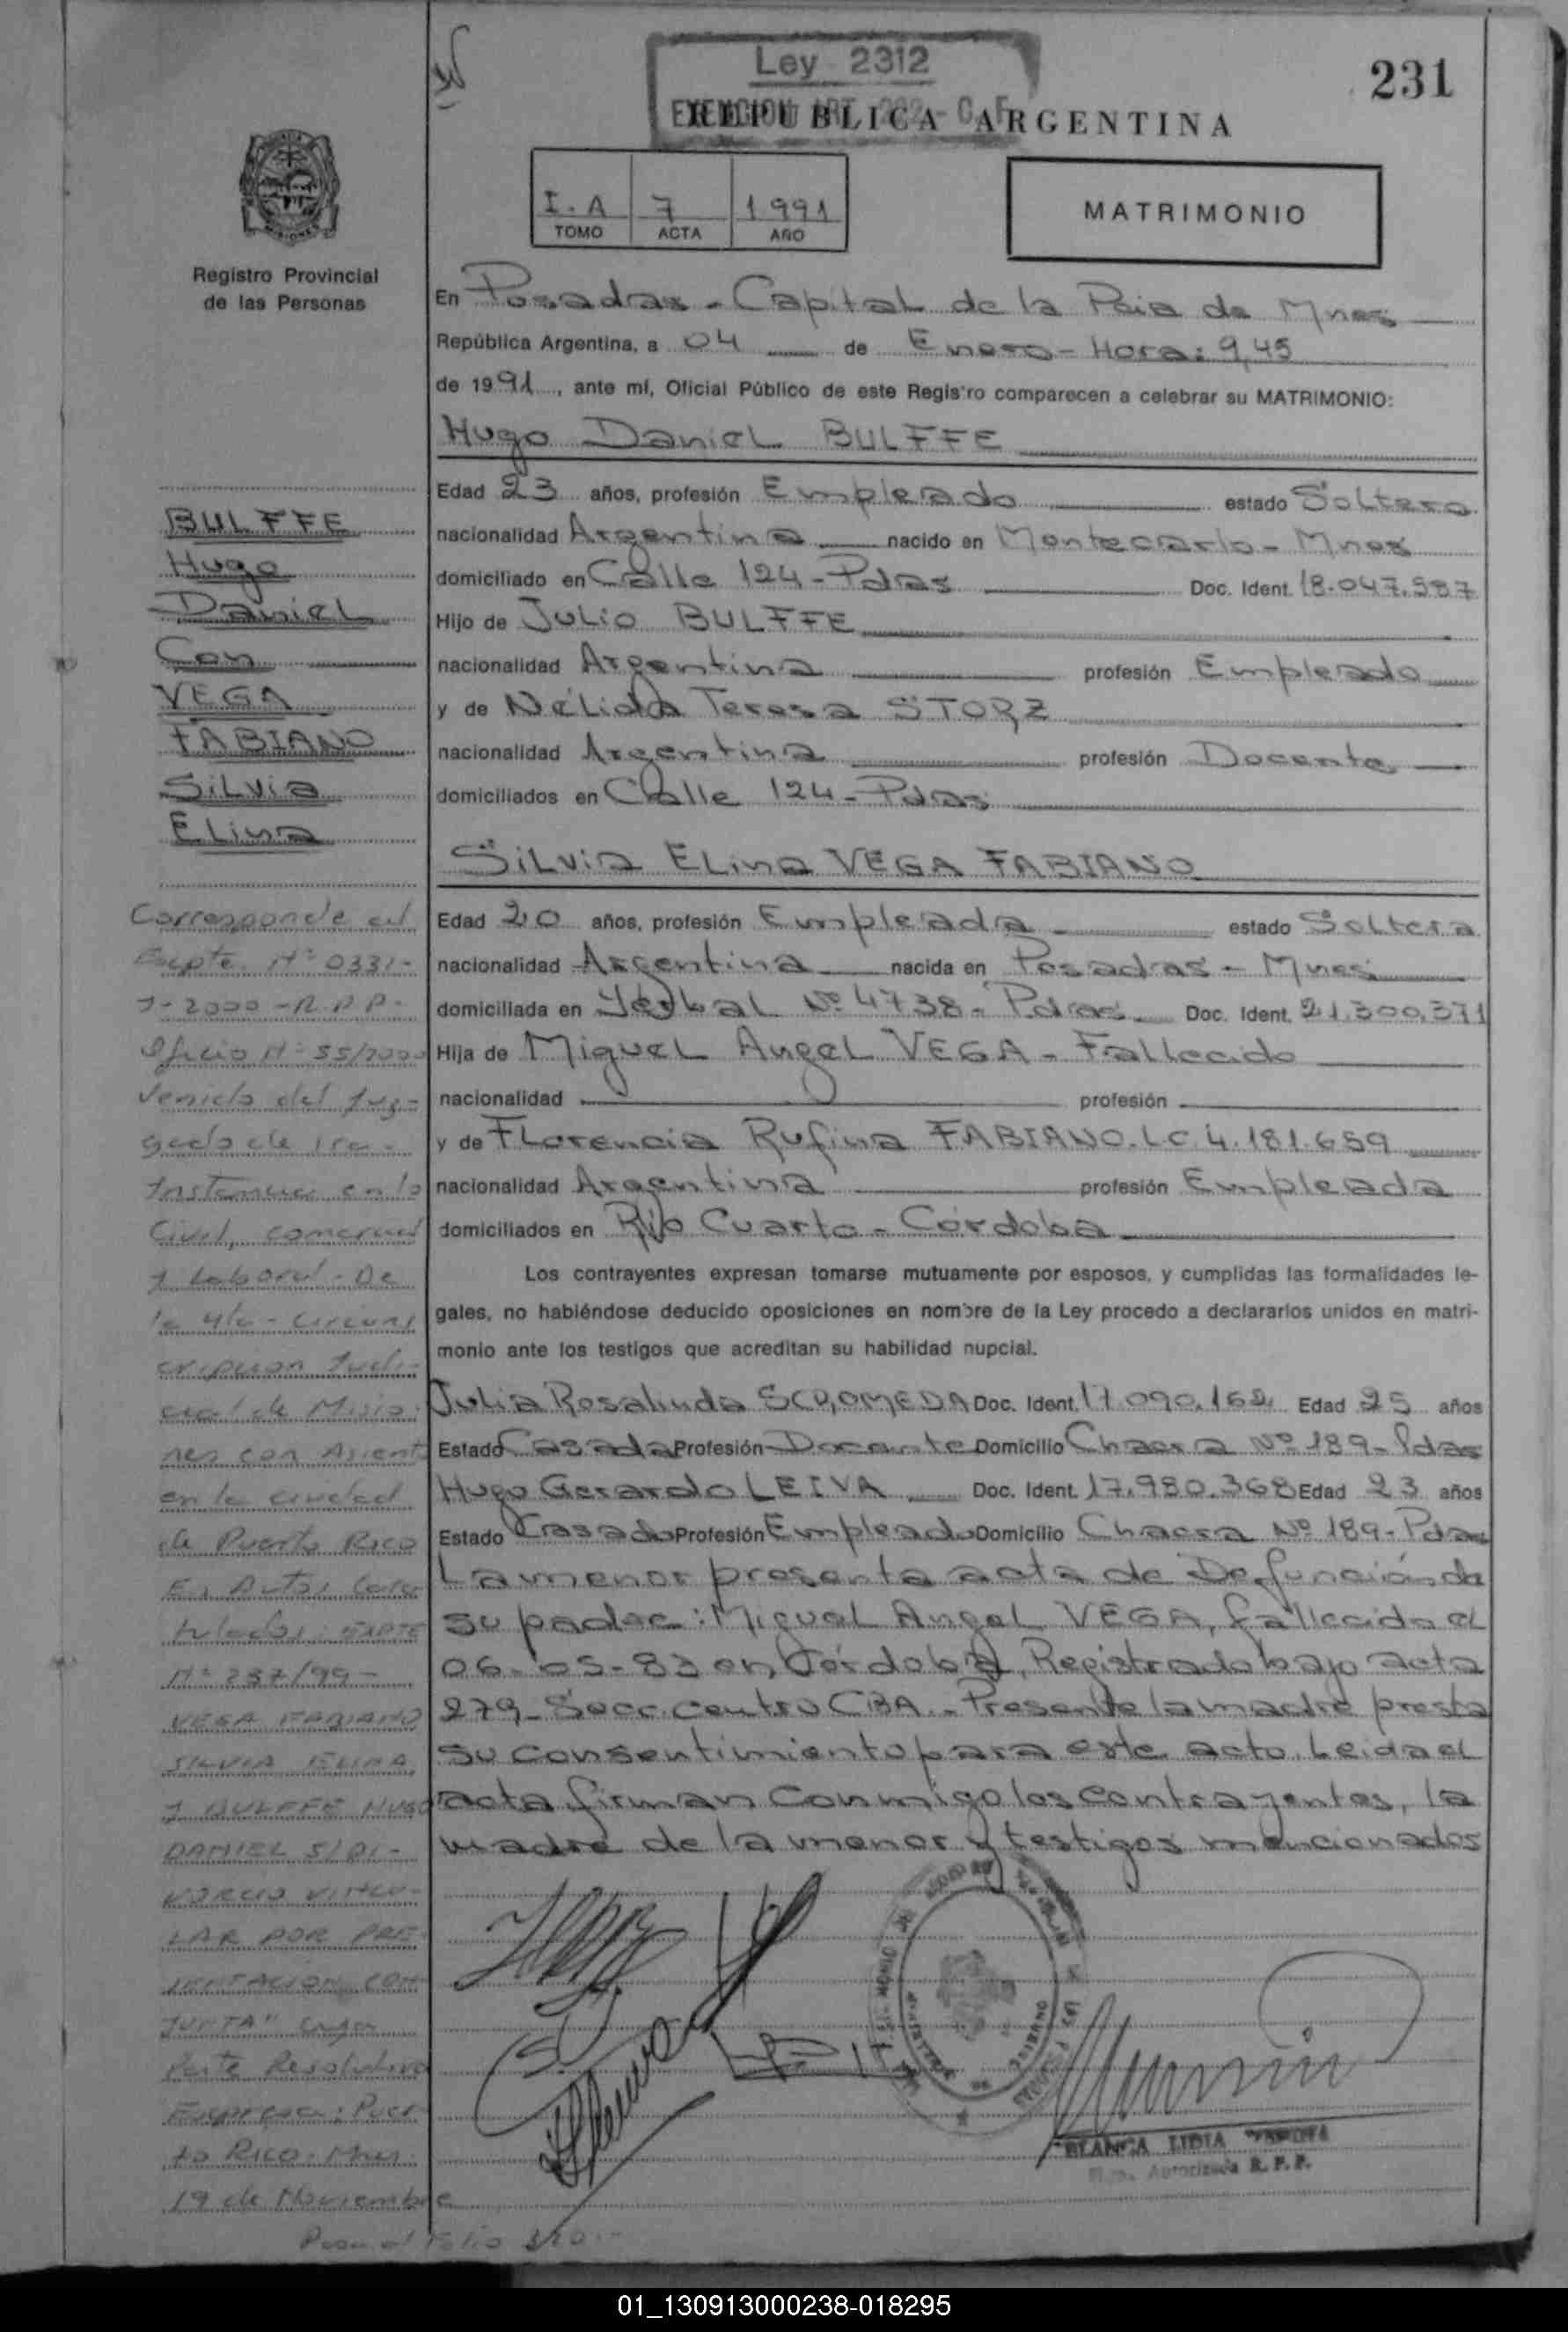 Ley 2312
EXENCION ART. 282 - C. F.
231
REPUBLICA ARGENTINA
I.A 7 1991
TOMO ACTA AÑO
MATRIMONIO
Registro Provincial
de las Personas
En Posadas - Capital de la Pcia de Mnes
República Argentina, a 04 de Enero - Hora: 9,45
de 1991, ante mí, Oficial Público de este Registro comparecen a celebrar su MATRIMONIO:
Hugo Daniel BULFFE
Edad 23 años, profesión Empleado estado Soltero
nacionalidad Argentina nacido en Montecarlo - Mnes
domiciliado en Calle 124 - Pdas Doc. Ident. 18.047.987
Hijo de Julio BULFFE
nacionalidad Argentina profesión Empleado
y de Nélida Teresa STORZ
nacionalidad Argentina profesión Docente
domiciliados en Calle 124 - Pdas
Silvia Elina VEGA FABIANO
Edad 20 años, profesión Empleada estado Soltera
nacionalidad Argentina nacida en Posadas - Mnes
domiciliada en Yerbal Nº 4738 - Pdas Doc. Ident. 21.300.371
Hija de Miguel Angel VEGA - Fallecido
nacionalidad profesión
y de Florencia Rufina FABIANO. L.C. 4.181.659
nacionalidad Argentina profesión Empleada
domiciliados en Río Cuarto - Córdoba
Los contrayentes expresan tomarse mutuamente por esposos, y cumplidas las formalidades le-
gales, no habiéndose deducido oposiciones en nombre de la Ley procedo a declararlos unidos en matri-
monio ante los testigos que acreditan su habilidad nupcial.
Julia Rosalinda Doc. Ident. 17.090.162 Edad 25 años
Estado Casada Profesión Docente Domicilio Chacra Nº 189 - Pdas
Hugo Gerardo LEIVA Doc. Ident. 17.980.368 Edad 23 años
Estado Casado Profesión Empleado Domicilio Chacra Nº 189 - Pdas
La menor presenta acta de Defunción de
su padre: Miguel Angel VEGA, fallecido el
06-05-83 en Córdoba, Registrado bajo acta
279 - Secc. Centro CBA. - Presente la madre presta
su consentimiento para este acto. Leida el
acta firman conmigo los contrayentes, la
madre de la menor y testigos mencionados
BLANCA LIDIA
Autorizada R. P. P.
BULFFE
Hugo
Daniel
Con
VEGA
FABIANO
Silvia
Elina
Corresponde al
Expte. Nº 0331-
J-2000-R.P.P-
Oficio Nº 55/2000
Venido del Juz-
gado de 1ra.
Instancia en lo
Civil, comercial
y Laboral - De
la 4ta - Circuns
cripcion Judi-
cial de Misio-
nes con Asiento
en la ciudad
de Puerto Rico
En Autos Cara
tulados: EXPTE
Nº 237/99-
VEGA FABIANO
SILVIA ELINA
Y BULFFE HUGO
DANIEL S/DI-
VORCIO VINCU-
LAR POR PRE-
SENTACION CON
JUNTA" cuya
Parte Resolutiva
Expresa: Puer
to Rico. Mnes.
19 de Noviembre
Pasa al Folio
01_130913000238-018295